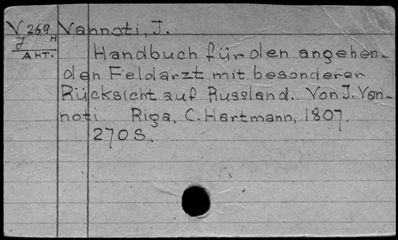 V 269 Vannoti, J.
J H
Ant. Handbuch für den angehen-
den Feldarzt mit besonderer
Rücksicht auf Russland. Von J. Van-
noti. Riga, C. Hartmann, 1807.
270 S.